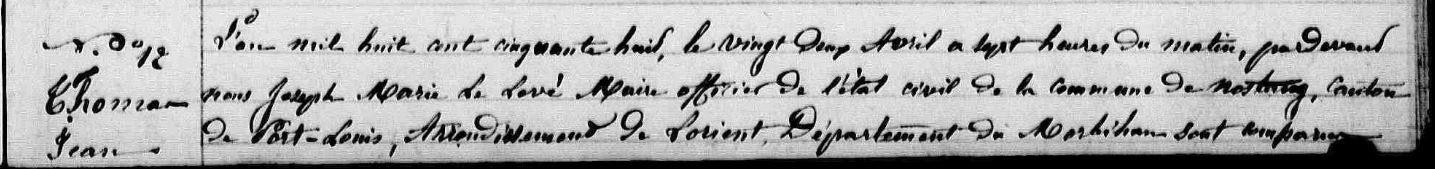 N.º 12
Thomas
Jean
L'an mil huit cent cinquante huit, le vingt deux Avril a sept heures du matin, pardevant
nous Joseph Marie Le Levé Maire officier de l'état civil de la commune de nostang, Canton
de Port-Louis, Arrondissement de Lorient, Département du Morbihan sont comparus